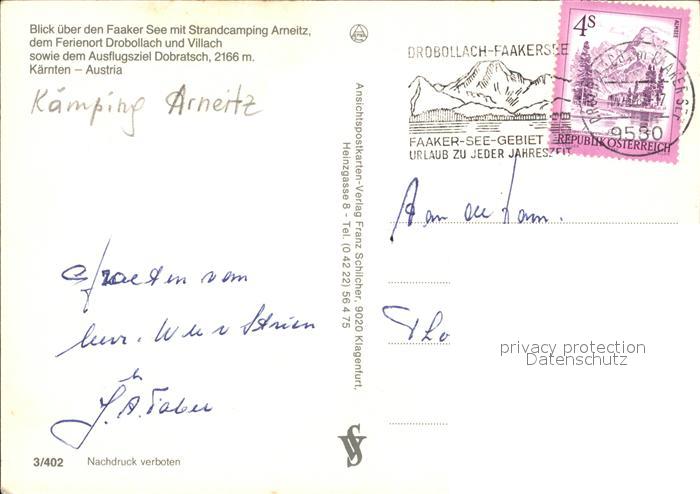 Blick über den Faaker See mit Strandcamping Arneitz,
dem Ferienort Drobollach und Villach
sowie dem Ausflugsziel Dobratsch, 2166 m.
Kärnten – Austria
Kämping Arneitz
Groeten van
3/402 Nachdruck verboten
Ansichtspostkarten-Verlag Franz Schilcher, 9020 Klagenfurt,
Heinzgasse 8 - Tel. (0 42 22) 56 4 75
DROBOLLACH-FAAKERSEE
FAAKER-SEE-GEBIET
URLAUB ZU JEDER JAHRESZEIT
4S
ALMSEE
REPUBLIK ÖSTERREICH
9580
Aan de Fam.
privacy protection
Datenschutz